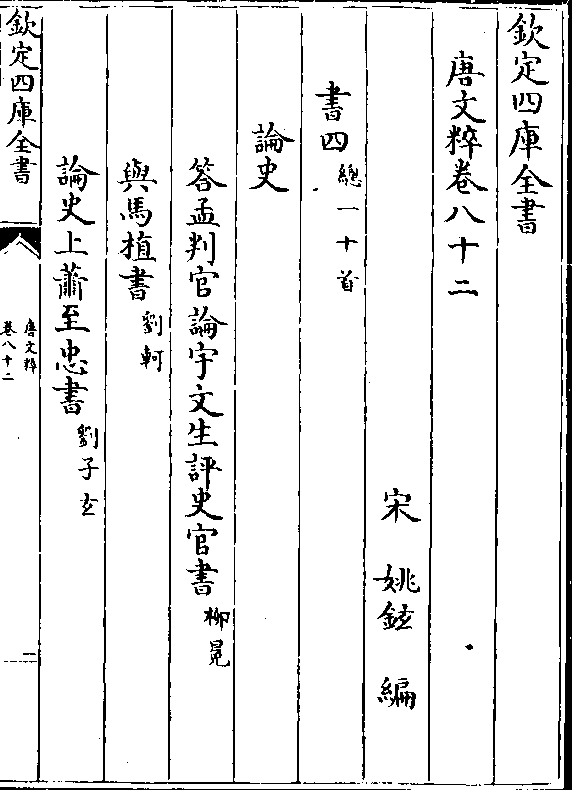 欽定四庫全書
唐文粹卷八十二
宋 姚鉉 編
書四 總一十首
論史
答孟判官論宇文生評史官書 柳冕
與馬植書 劉軻
論史上蕭至忠書 劉子玄
欽定四庫全書
唐文粹
卷八十二
一